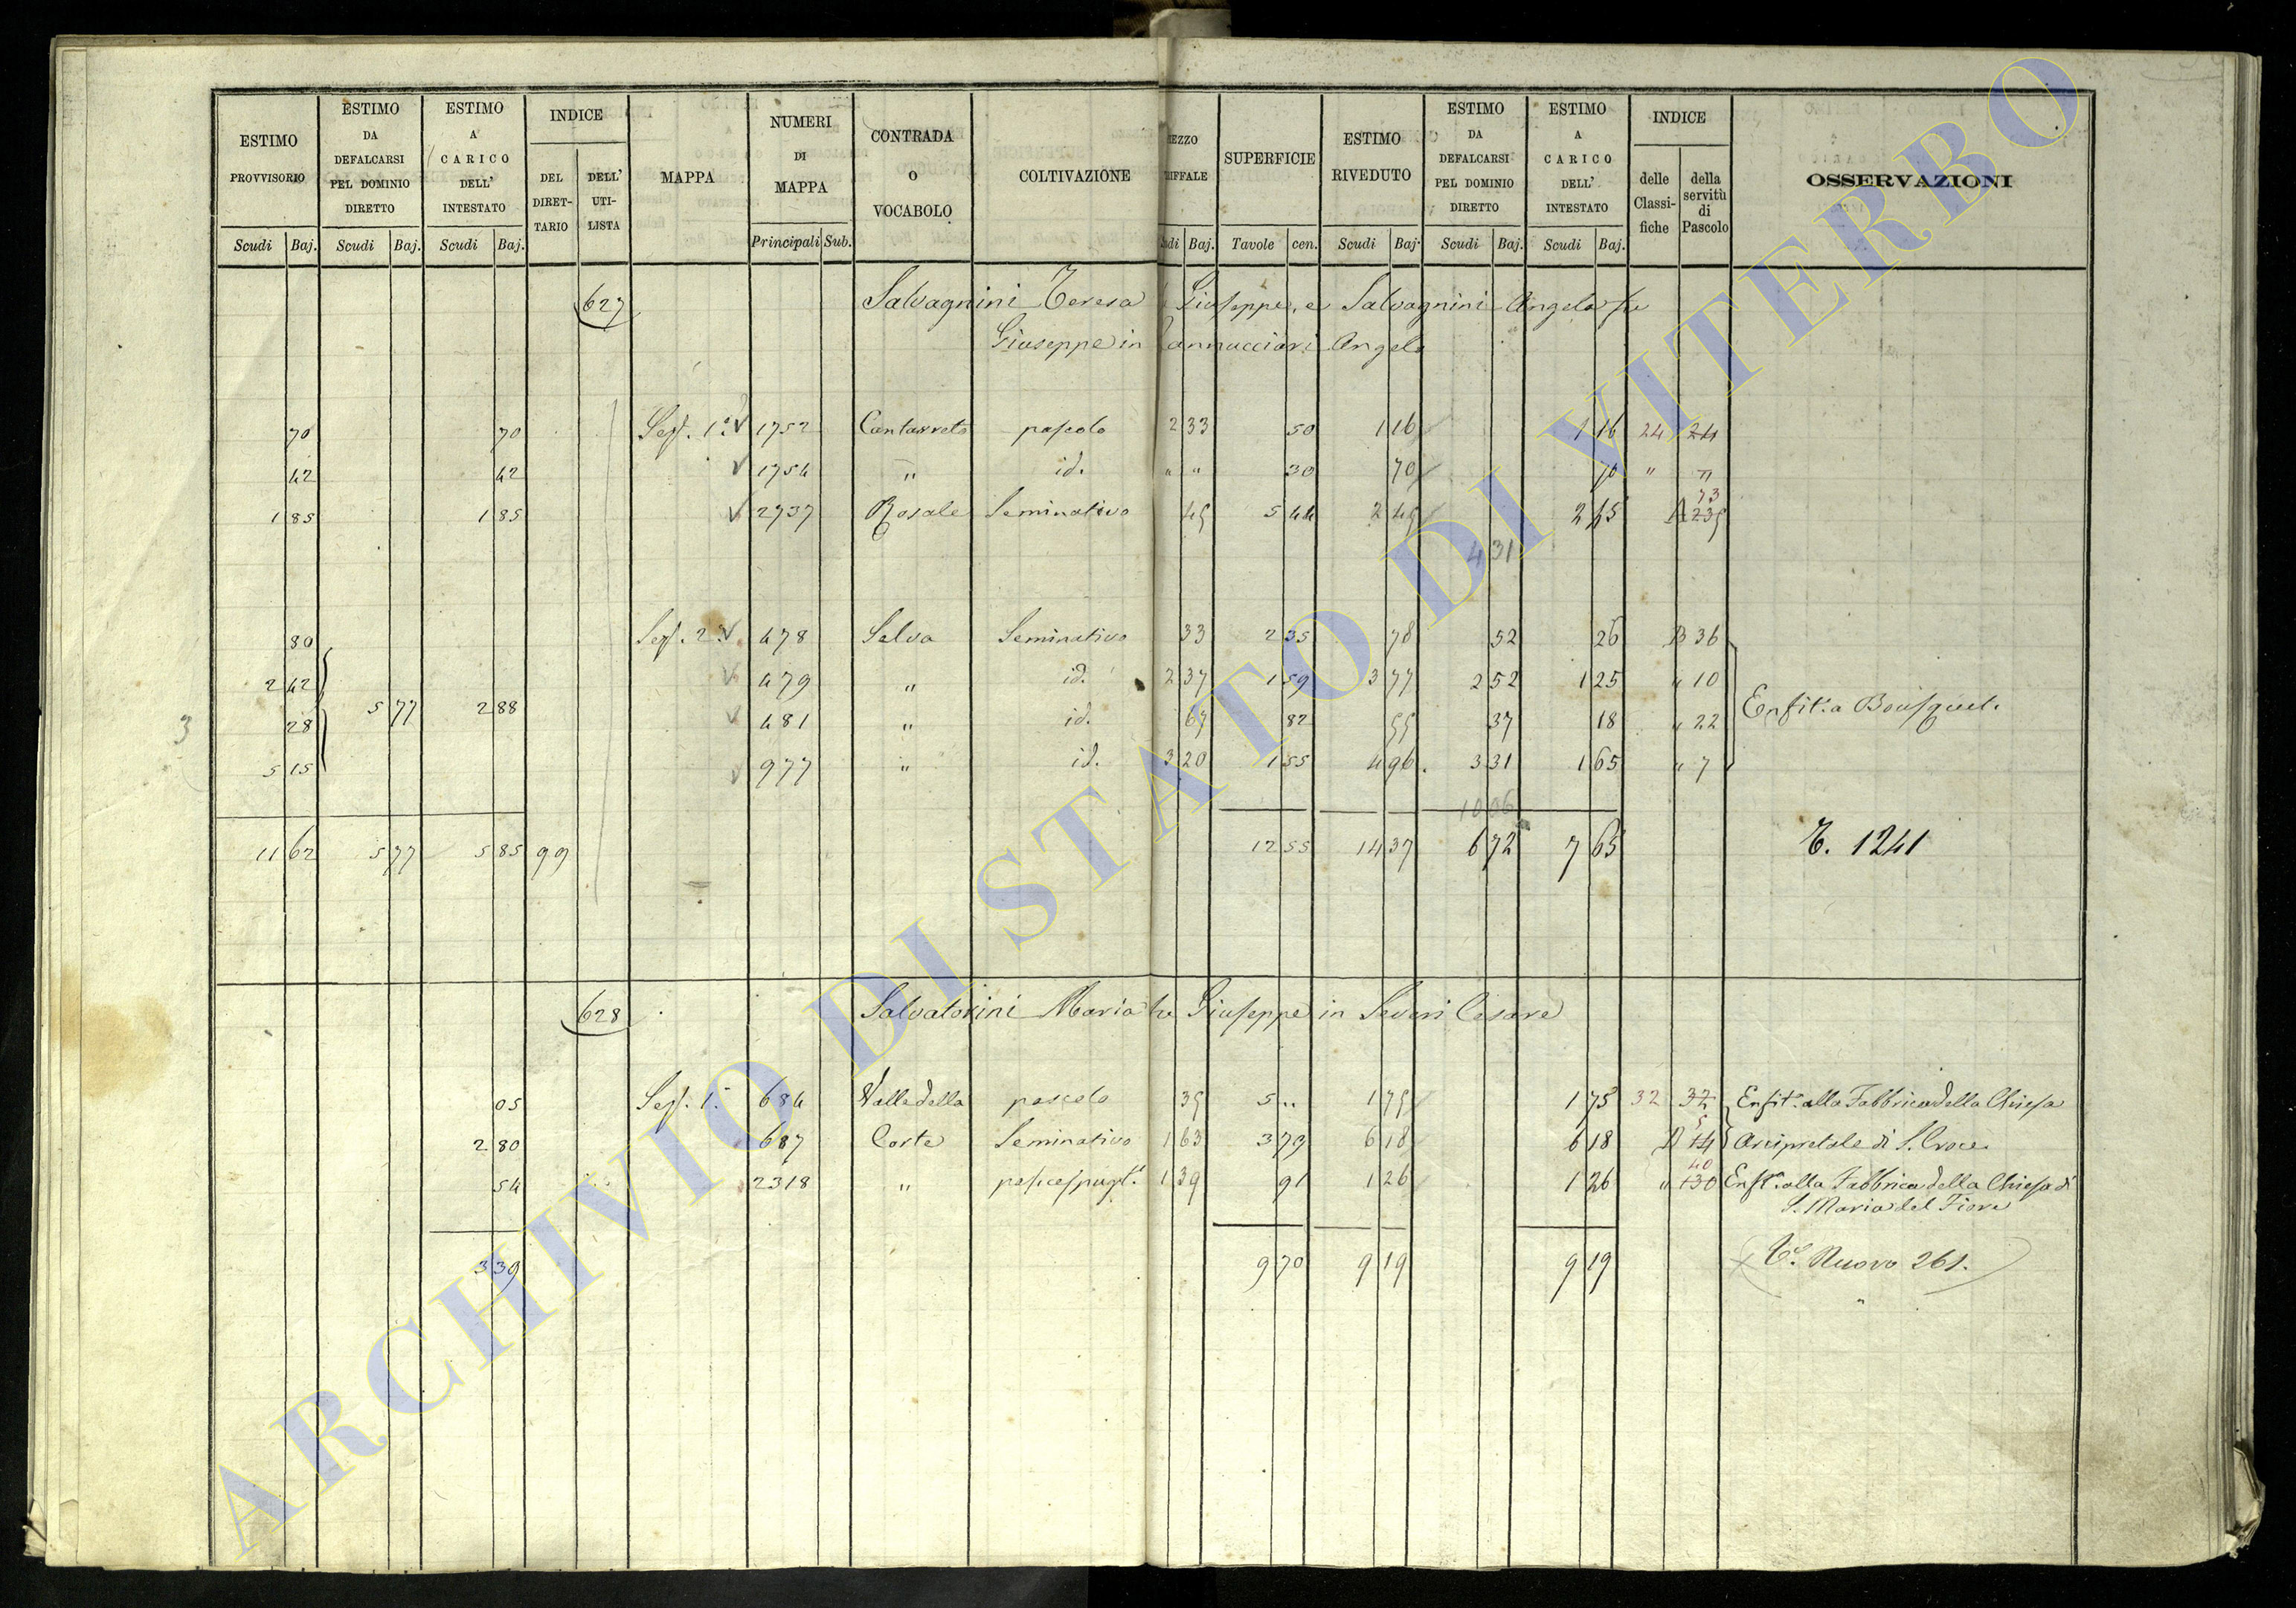 ESTIMO PROVVISORIO Scudi Baj. ESTIMO DA DEFALCARSI PEL DOMINIO DIRETTO Scudi Baj. ESTIMO A CARICO DELL' INTESTATO Scudi Baj. INDICE DEL DIRETTARIO DELL' UTILISTA MAPPA NUMERI DI MAPPA Principali Sub. CONTRADA O VOCABOLO COLTIVAZIONE EZZO IFFALE Baj. SUPERFICIE Tavole cen. ESTIMO RIVEDUTO Scudi Baj. ESTIMO DA DEFALCARSI PEL DOMINIO DIRETTO Scudi Baj. ESTIMO A CARICO DELL' INTESTATO Scudi Baj. INDICE delle Classifiche della servitù di Pascolo OSSERVAZIONI
627 Salvagnini Teresa Giuseppe, e Salvagnini Angela fu
Giuseppe in annucciari Angelo
70 70 Sez. 1ª 1752 Cantarreto pascolo 2 33 50 1 16 1 16 24 24
42 42 1754 " id. " " 30 70 70 " "
1 85 1 85 2737 Rosale Seminativo 45 5 44 2 45 2 45 A 235 73
431
80 Sez. 2ª 478 Selva Seminativo 33 2 35 78 52 26 B 36
2 42 479 " id. 2 37 1 59 3 77 2 52 1 25 " 10
3 28 5 77 2 88 481 " id. 67 82 55 37 18 " 22 Enfit.a Bousquet.
5 15 977 " id. 3 20 1 55 4 96 3 31 1 65 " 7
1006
11 62 5 77 5 85 99 12 55 14 37 6 72 7 65 T. 1241
628 Salvatorini Maria fu Giuseppe in Severi Cesare
05 Sez. 1. 684 Valle della pascolo 35 5 " 1 75 1 75 32 32 Enfit. alla Fabbrica della Chiesa
2 80 687 Corte Seminativo 1 63 3 79 6 18 6 18 A 14 5 Arcipretale di S. Croce
54 2318 " 1 39 91 1 26 1 26 " 130 40 Enfit. alla Fabbrica della Chiesa di
S. Maria del Fiore
3 39 9 70 9 19 9 19 Nuovo 261.
ARCHIVIO DI STATO DI VITERBO